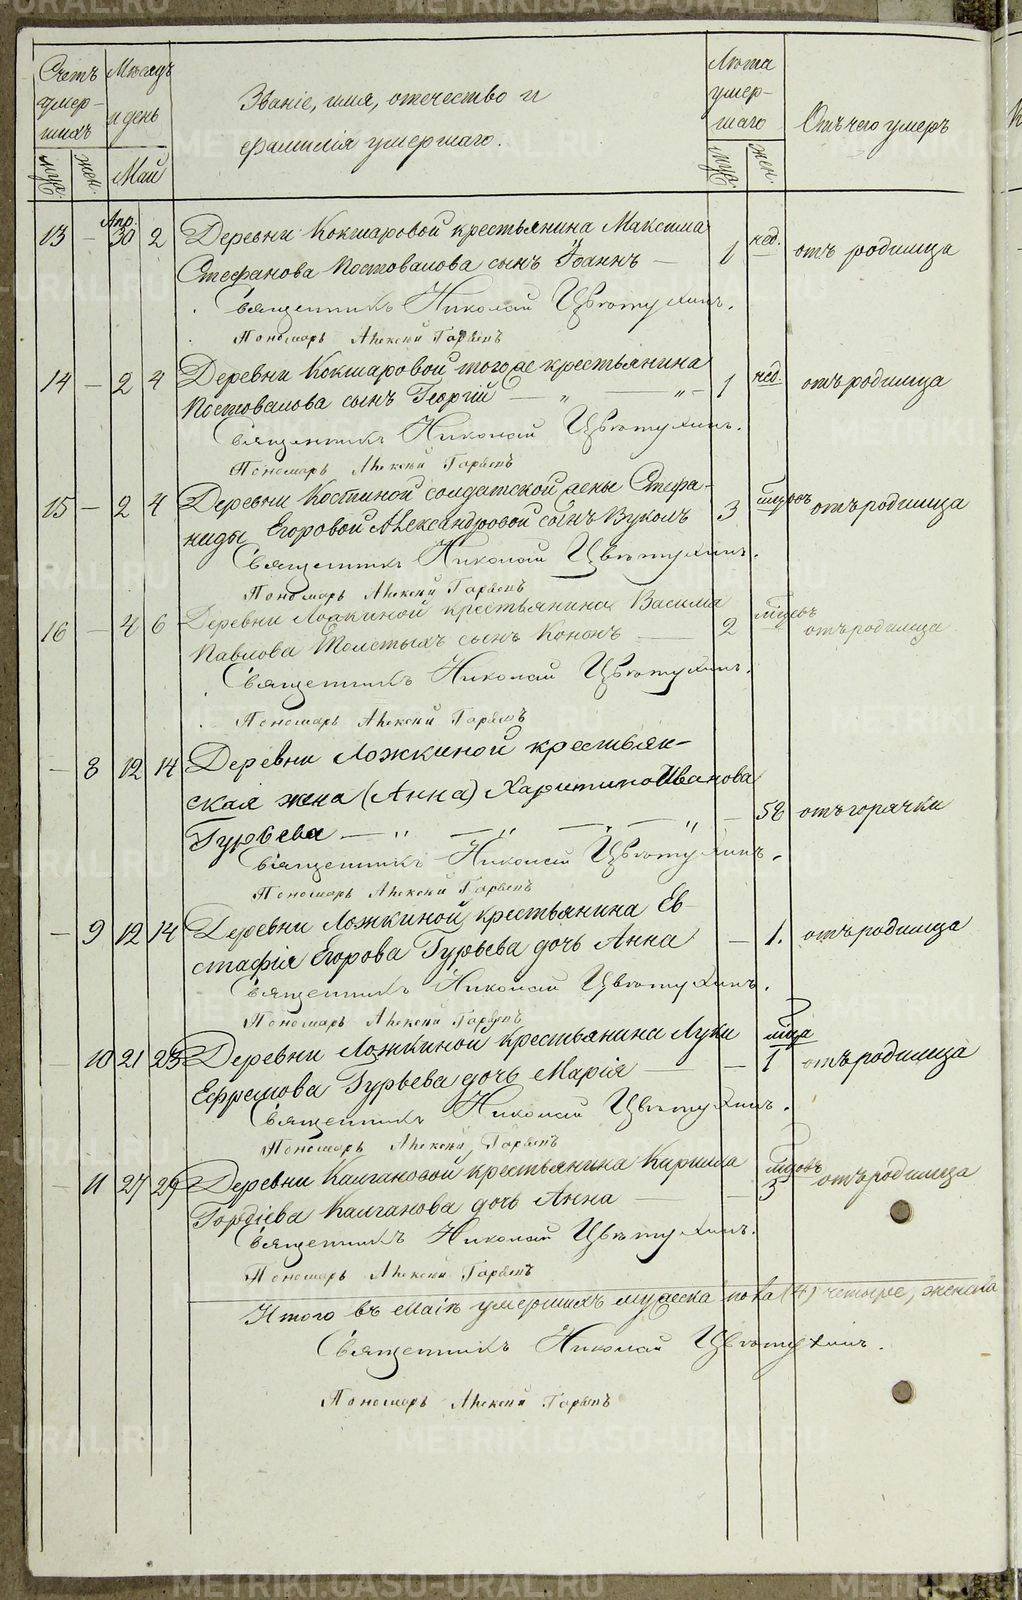 Счетъ умер-шихъ
Мѣсяцъ и день
Званіе, имя, отечество и
фамилія умершаго.
Лѣта умер-шаго
Отъ чего умеръ
муж. жен. Май муж. жен.
13 – Апр. 30 2 Деревни Кокшаровой крестьянина Максима
Стефанова Постовалова сынъ Іоаннъ — 1 нед. отъ родимца
Священникъ Николай Цвѣтухинъ.
Пономарь Алексѣй
14 – 2 4 Деревни Кокшаровой тогоже крестьянина
Постовалова сынъ Георгій — „ — „ – 1 нед. отъ родимца
Священникъ Николай Цвѣтухинъ.
Пономарь Алексѣй
15 – 2 4 Деревни Костиной солдатской жены Стефа-
ниды Егоровой Александровой сынъ Вуколъ 3 отъ родимца
Священникъ Николай Цвѣтухинъ.
Пономарь Алексѣй
16 – 4 6 Деревни Ложкиной крестьянина Василія
Павлова Толстыхъ сынъ Кононъ — 2 отъ родимца
Священникъ Николай Цвѣтухинъ.
Пономарь Алексѣй
– 8 12 14 Деревни Ложкиной крестьян-
ская жена (Анна) Иванова
Гурьева — „ — „ — — „ – 58 отъ горячки
Священникъ Николай Цвѣтухинъ.
Пономарь Алексѣй
– 9 12 14 Деревни Ложкиной крестьянина Ев-
стафія Егорова Гурьева дочь Анна – 1. отъ родимца
Священникъ Николай Цвѣтухинъ.
Пономарь Алексѣй
– 10 21 23 Деревни Ложкиной крестьянина Луки
Ефремова Гурьева дочь Марія — – 1 отъ родимца
Священникъ Николай Цвѣтухинъ.
Пономарь Алексѣй
– 11 27 29 Деревни Калгановой крестьянина Кирилла
Гордіева Калганова дочь Анна — – 5 отъ родимца
Священникъ Николай Цвѣтухинъ.
Пономарь Алексѣй
Итого въ Маіѣ умершихъ мужеска пола (4) четыре, женска
Священникъ Николай Цвѣтухинъ.
Пономарь Алексѣй
METRIKI.GASO-URAL.RU